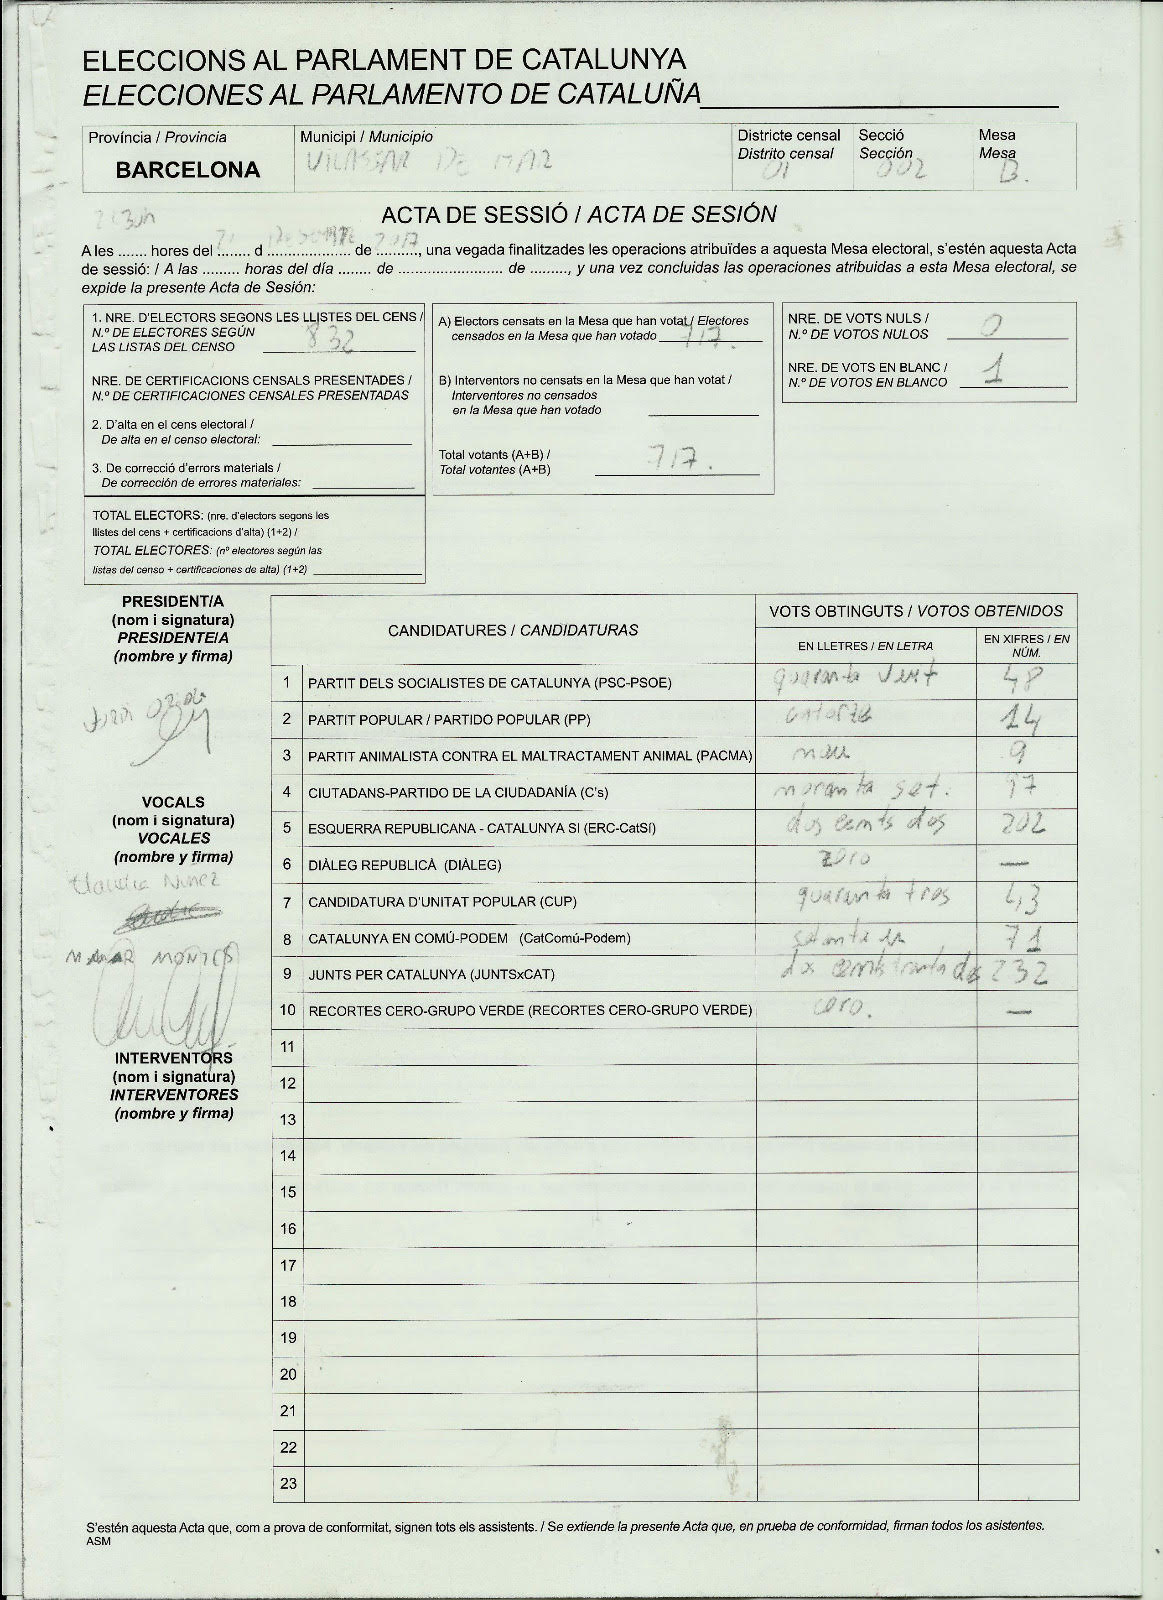 ELECCIONS AL PARLAMENT DE CATALUNYA
ELECCIONES AL PARLAMENTO DE CATALUÑA
Província / Provincia
BARCELONA
Municipi / Municipio
VILASSAR DE MAR
Districte censal
Distrito censal
01
Secció
Sección
002
Mesa
Mesa
B.
ACTA DE SESSIÓ / ACTA DE SESIÓN
A les ....... hores del 21 d ..................... de 2017, una vegada finalitzades les operacions atribuïdes a aquesta Mesa electoral, s'estén aquesta Acta
de sessió: / A las ......... horas del día ........ de .......................... de ........., y una vez concluidas las operaciones atribuidas a esta Mesa electoral, se
expide la presente Acta de Sesión:
1. NRE. D'ELECTORS SEGONS LES LLISTES DEL CENS /
N.º DE ELECTORES SEGÚN
LAS LISTAS DEL CENSO 832
NRE. DE CERTIFICACIONS CENSALS PRESENTADES /
N.º DE CERTIFICACIONES CENSALES PRESENTADAS
2. D'alta en el cens electoral /
De alta en el censo electoral:
3. De correcció d'errors materials /
De corrección de errores materiales:
TOTAL ELECTORS: (nre. d'electors segons les
llistes del cens + certificacions d'alta) (1+2) /
TOTAL ELECTORES: (nº electores según las
listas del censo + certificaciones de alta) (1+2)
A) Electors censats en la Mesa que han votat / Electores
censados en la Mesa que han votado 717.
B) Interventors no censats en la Mesa que han votat /
Interventores no censados
en la Mesa que han votado
Total votants (A+B) /
Total votantes (A+B) 717.
NRE. DE VOTS NULS /
N.º DE VOTOS NULOS 0
NRE. DE VOTS EN BLANC /
N.º DE VOTOS EN BLANCO 1
PRESIDENT/A
(nom i signatura)
PRESIDENTE/A
(nombre y firma)
VOCALS
(nom i signatura)
VOCALES
(nombre y firma)
Claudia Nuñez
INTERVENTORS
(nom i signatura)
INTERVENTORES
(nombre y firma)
CANDIDATURES / CANDIDATURAS
VOTS OBTINGUTS / VOTOS OBTENIDOS
EN LLETRES / EN LETRA
EN XIFRES / EN
NÚM.
1 PARTIT DELS SOCIALISTES DE CATALUNYA (PSC-PSOE) quaranta vuit 48
2 PARTIT POPULAR / PARTIDO POPULAR (PP) catorze 14
3 PARTIT ANIMALISTA CONTRA EL MALTRACTAMENT ANIMAL (PACMA) nou 9
4 CIUTADANS-PARTIDO DE LA CIUDADANÍA (C's) noranta set. 97
5 ESQUERRA REPUBLICANA - CATALUNYA SI (ERC-CatSí) dos cents dos 202
6 DIÀLEG REPUBLICÀ (DIÀLEG) zero —
7 CANDIDATURA D'UNITAT POPULAR (CUP) quaranta tres 43
8 CATALUNYA EN COMÚ-PODEM (CatComú-Podem) setanta un 71
9 JUNTS PER CATALUNYA (JUNTSxCAT) dos cents trenta dos 232
10 RECORTES CERO-GRUPO VERDE (RECORTES CERO-GRUPO VERDE) cero. —
11
12
13
14
15
16
17
18
19
20
21
22
23
S'estén aquesta Acta que, com a prova de conformitat, signen tots els assistents. / Se extiende la presente Acta que, en prueba de conformidad, firman todos los asistentes.
ASM